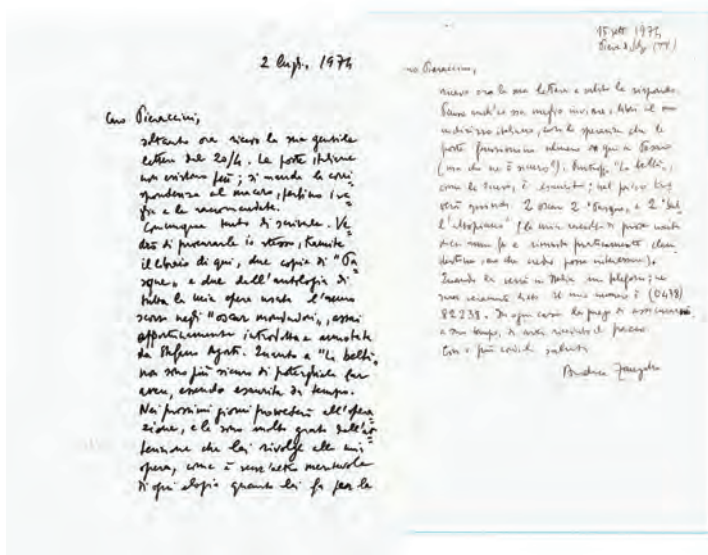 2 luglio, 1974
Caro Pieraccini,
soltanto ora ricevo la sua gentile
lettera del 20/4. Le poste italiane
non esistono più; si manda la corri=
spondenza al macero, perfino i va=
glia e le raccomandate.
Comunque tento di scriverle. Ve=
drò di procurarle io stesso, tramite
il libraio di qui, due copie di "Pa
sque" e due dell'antologia di
tutta la mia opera uscita l'anno
scorso negli "oscar mondadori", assai
introdotta e annotata
da Stefano Agosti. Quanto a "La beltà",
non sono più sicuro di potergliela far
avere, essendo esaurita da tempo.
Nei prossimi giorni provvederò all'opera
zione, e le sono molto grato dell'at
tenzione che lei rivolge alla mia
opera, come è senz'altro meritevole
di ogni elogio quanto lei fa per la
15 sett 1974
Pieve di (TV)
Pieraccini,
ricevo ora la sua lettera e subito le rispondo.
Penso anch'io sia meglio inviare i libri al suo
indirizzo italiano, con la speranza che le
poste funzionino almeno da qui a
(ma chi ne è sicuro?). Purtroppo "La beltà",
come le dicevo, è esaurita; nel pacco
quindi 2 oscar 2 "Pasque", e 2 "Sul
l'altopiano" (la mia raccolta di prose uscita
anni fa e rimasta praticamente clan
destina ma che credo possa interessare).
Quando lei verrà in Italia mi telefoni; ne
sarei veramente lieto. Il mio numero è (0438)
82238. In ogni caso la prego di assicurarmi
a suo tempo, di aver ricevuto il pacco.
Con i più cordiali saluti
Andrea Zanzotto